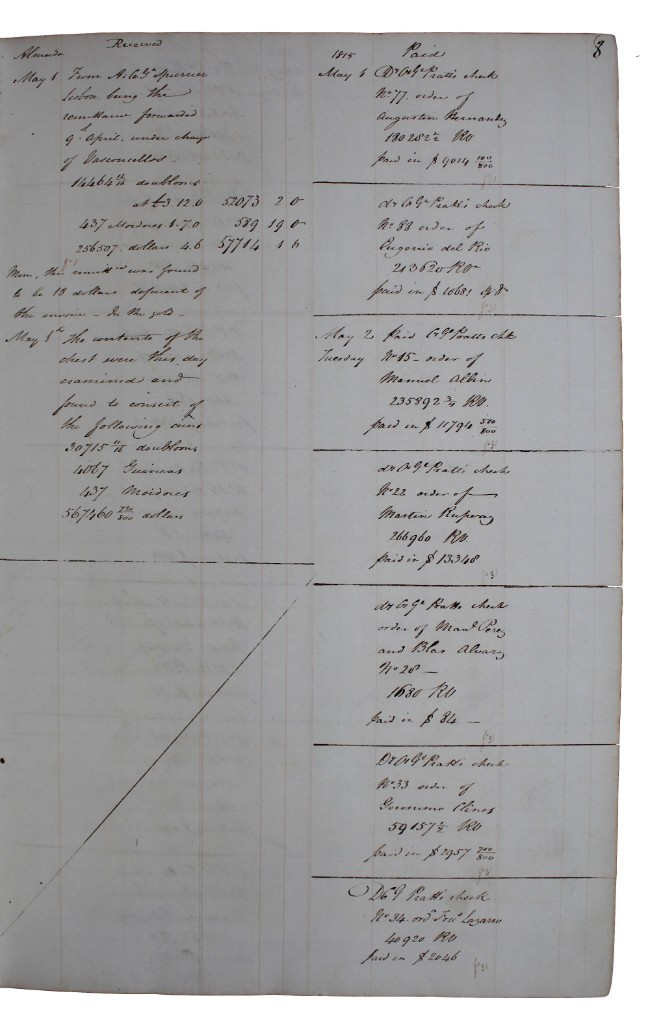 8
Almeida Received
May 1 From A. C. Gl. Spencer
Lisbon being the
remittance forwarded
9th April, under charge
of Vasconcellos.
14464 12/16 doubloons
at £3.12.0 52073 2 0
437 Moidores 1.7.0 589 19 0
256507 dollars 4.6 57714 1 6
Mem, this remittce was found
to be 18 dollars deficient of
the invoice - In the gold -
May 1st The contents of the
chest were this day
examined and
found to consist of
the following coins
30715 11/16 doubloons
4067 Guineas
437 Moidores
567460 dollars
1815 Paid
May 1 Dy C Gl Pratt's check
No 77. order of
Augustin Hernandez
180282 1/2 RV
paid in $ 9014 100/800
do C Gl Pratt's check
No 88 order of
Eugenio del Rio
213620 RV
paid in $ 10681
May 2 Paid C Gl Pratts Chk
Tuesday No 15 - order of
Manuel Albin
235892 3/4 RV.
paid in $ 11794 510/800
dy C Gl Pratt's check
No 22 order of
Martin
266960 RV.
paid in $ 13348
dy C Gl Pratts check
order of Manl Perez
and Blas Alvarez
No 28 -
1680 RV
paid in $ 84 -
Dy C Gl Pratt's check
No 33 order of
Geronimo Clinos
59157 1/2 RV
paid in $ 2957 700/800
D C G. Pratt's check
No 34. ordr Frno Lazaro
40920 RV
Paid in $ 2046